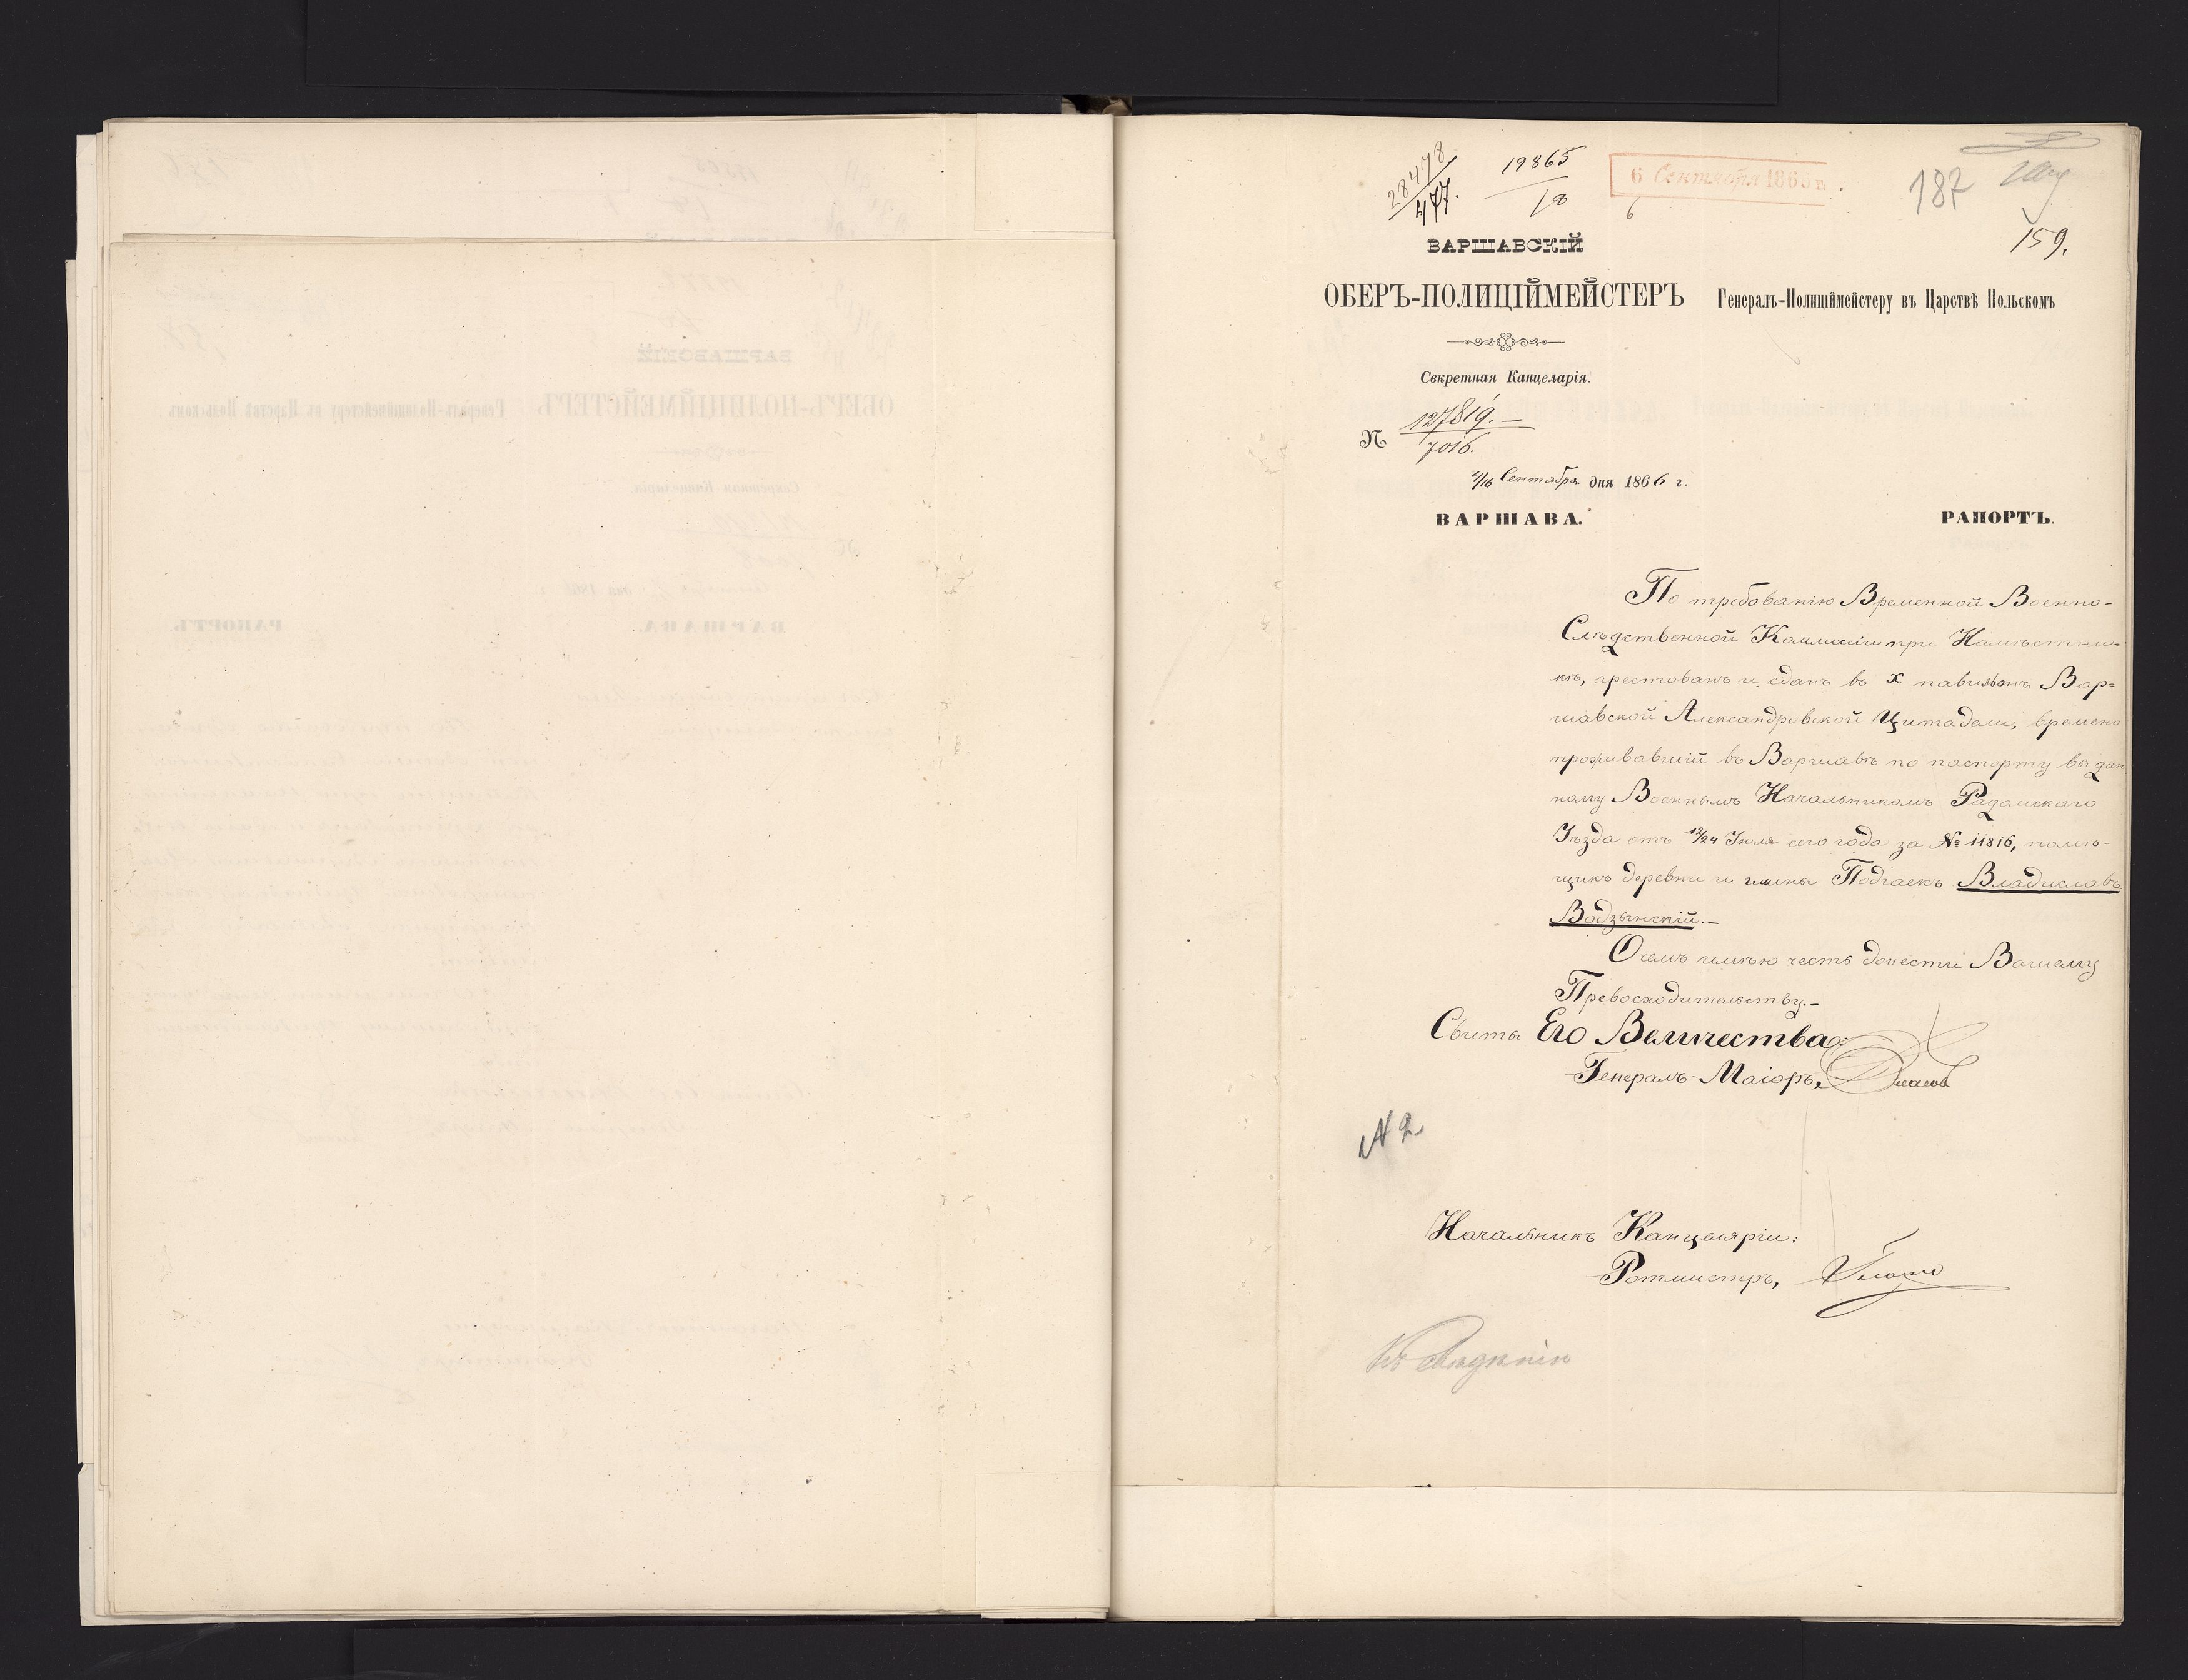 28478
477.
19865
18
6 Сентября 1866 г.
6
187
159.
ВАРШАВСКІЙ
ОБЕРЪ-ПОЛИЦІЙМЕЙСТЕРЪ
Генералъ-Полиціймейстеру въ Царствѣ Польскомъ
Секретная Канцеларія.
№ 127819.—
7016.
4/16 Сентября дня 1866 г.
ВАРШАВА.
РАПОРТЪ.
По требованію Временной Военно-
Слѣдственной Коммисіи при Намѣстни-
кѣ, арестованъ и сданъ въ X павильонъ Вар=
шавской Александровской Цитадели, времено
проживавшій въ Варшавѣ по паспорту выдан
ному Военнымъ Начальникомъ Радомскаго
Уѣзда отъ 12/24 Іюля сего года за № 11816, помѣ=
щикъ деревни и гмины Подгаекъ Владиславъ
Водзынскій.—
О чемъ имѣю честь донести Вашему
Превосходительству.—
Свиты Его Величества
Генералъ-Маіоръ,
№ 2
Начальникъ Канцеляріи:
Ротмистръ,
Къ свѣдѣнію